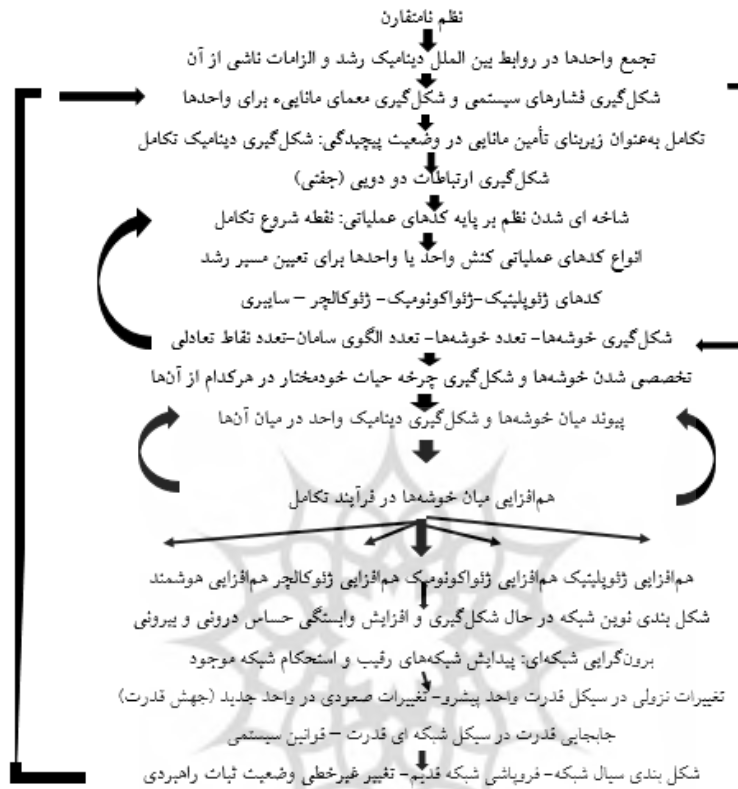 نظم نامتقارن
تجمع واحدها در روابط بین الملل دینامیک رشد و الزامات ناشی از آن
شکل‌گیری فشارهای سیستمی و شکل‌گیری معمای مانایی‌ء برای واحدها
تکامل به‌عنوان زیربنای تأمین مانایی در وضعیت پیچیدگی: شکل‌گیری دینامیک تکامل
شکل‌گیری ارتباطات دو دویی (جفتی)
شاخه ای شدن نظم بر پایه کدهای عملیاتی: نقطه شروع تکامل
انواع کدهای عملیاتی کنش واحد یا واحدها برای تعیین مسیر رشد
کدهای ژئوپلیتیک-ژئواکونومیک- ژئوکالچر – سایبری
شکل‌گیری خوشه‌ها- تعدد خوشه‌ها- تعدد الگوی سامان-تعدد نقاط تعادلی
تخصصی شدن خوشه‌ها و شکل‌گیری چرخه حیات خودمختار در هرکدام از آن‌ها
پیوند میان خوشه‌ها و شکل‌گیری دینامیک واحد در میان آن‌ها
هم‌افزایی میان خوشه‌ها در فرآیند تکامل
هم‌افزایی ژئوپلیتیک هم‌افزایی ژئواکونومیک هم‌افزایی ژئوکالچر هم‌افزایی هوشمند
شکل بندی نوین شبکه در حال شکل‌گیری و افزایش وابستگی حساس درونی و بیرونی
برون‌گرایی شبکه‌ای: پیدایش شبکه‌های رقیب و استحکام شبکه موجود
تغییرات نزولی در سیکل قدرت واحد پیشرو– تغییرات صعودی در واحد جدید (جهش قدرت)
جابجایی قدرت در سیکل شبکه ای قدرت – قوانین سیستمی
شکل بندی سیال شبکه- فروپاشی شبکه قدیم- تغییر غیرخطی وضعیت ثبات راهبردی